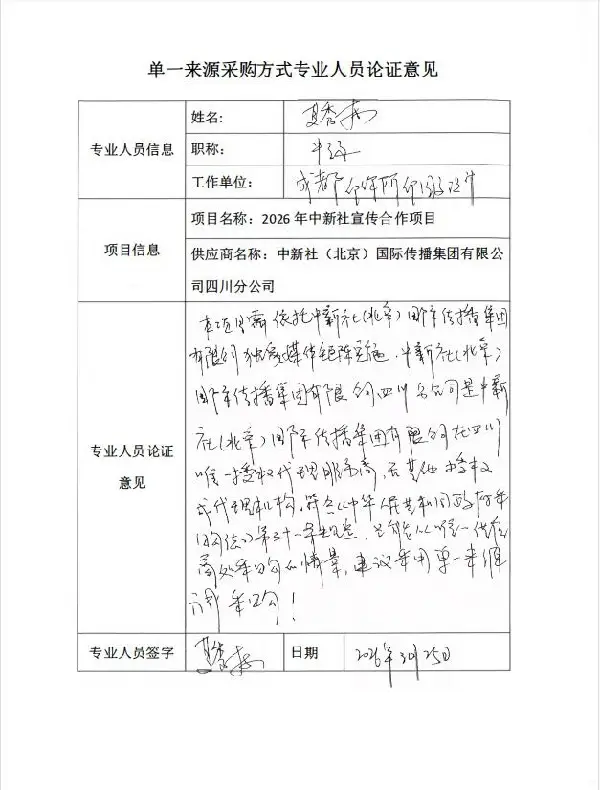 单一来源采购方式专业人员论证意见
专业人员信息
姓名:
职称:
工作单位: 成都
项目信息
项目名称: 2026 年中新社宣传合作项目
供应商名称: 中新社（北京）国际传播集团有限公
司四川分公司
专业人员论证
意见
本项目需依托中新社(北京)国际传播集团
有限公司独家媒体矩阵实施，中新社(北京)
国际传播集团有限公司四川分公司是中新
社(北京)国际传播集团有限公司在四川
唯一授权代理服务商，无其他授权
或代理机构，符合《中华人民共和国政府采
购法》第三十一条规定，只能从唯一供应
商处采购的情景，建议采用单一来源
方式采购！
专业人员签字
日期
2026年3月25日